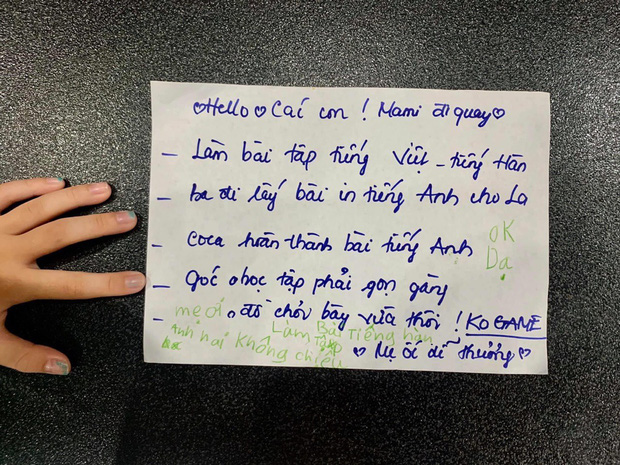 ♡Hello♡ Các con ! Mami đi quay♡
– Làm bài tập tiếng Việt – tiếng Hàn
– Ba đi lấy bài in tiếng Anh cho La
– Coca hoàn thành bài tiếng Anh
OK
Dạ
– Góc học tập phải gọn gàng
– đồ chơi bày vừa thôi ! KO GAME
mẹ ơi
Làm Bài Tập Tiếng hàn
Anh hai không chiếu
♡ Mẹ ối dễ thưởng ♡